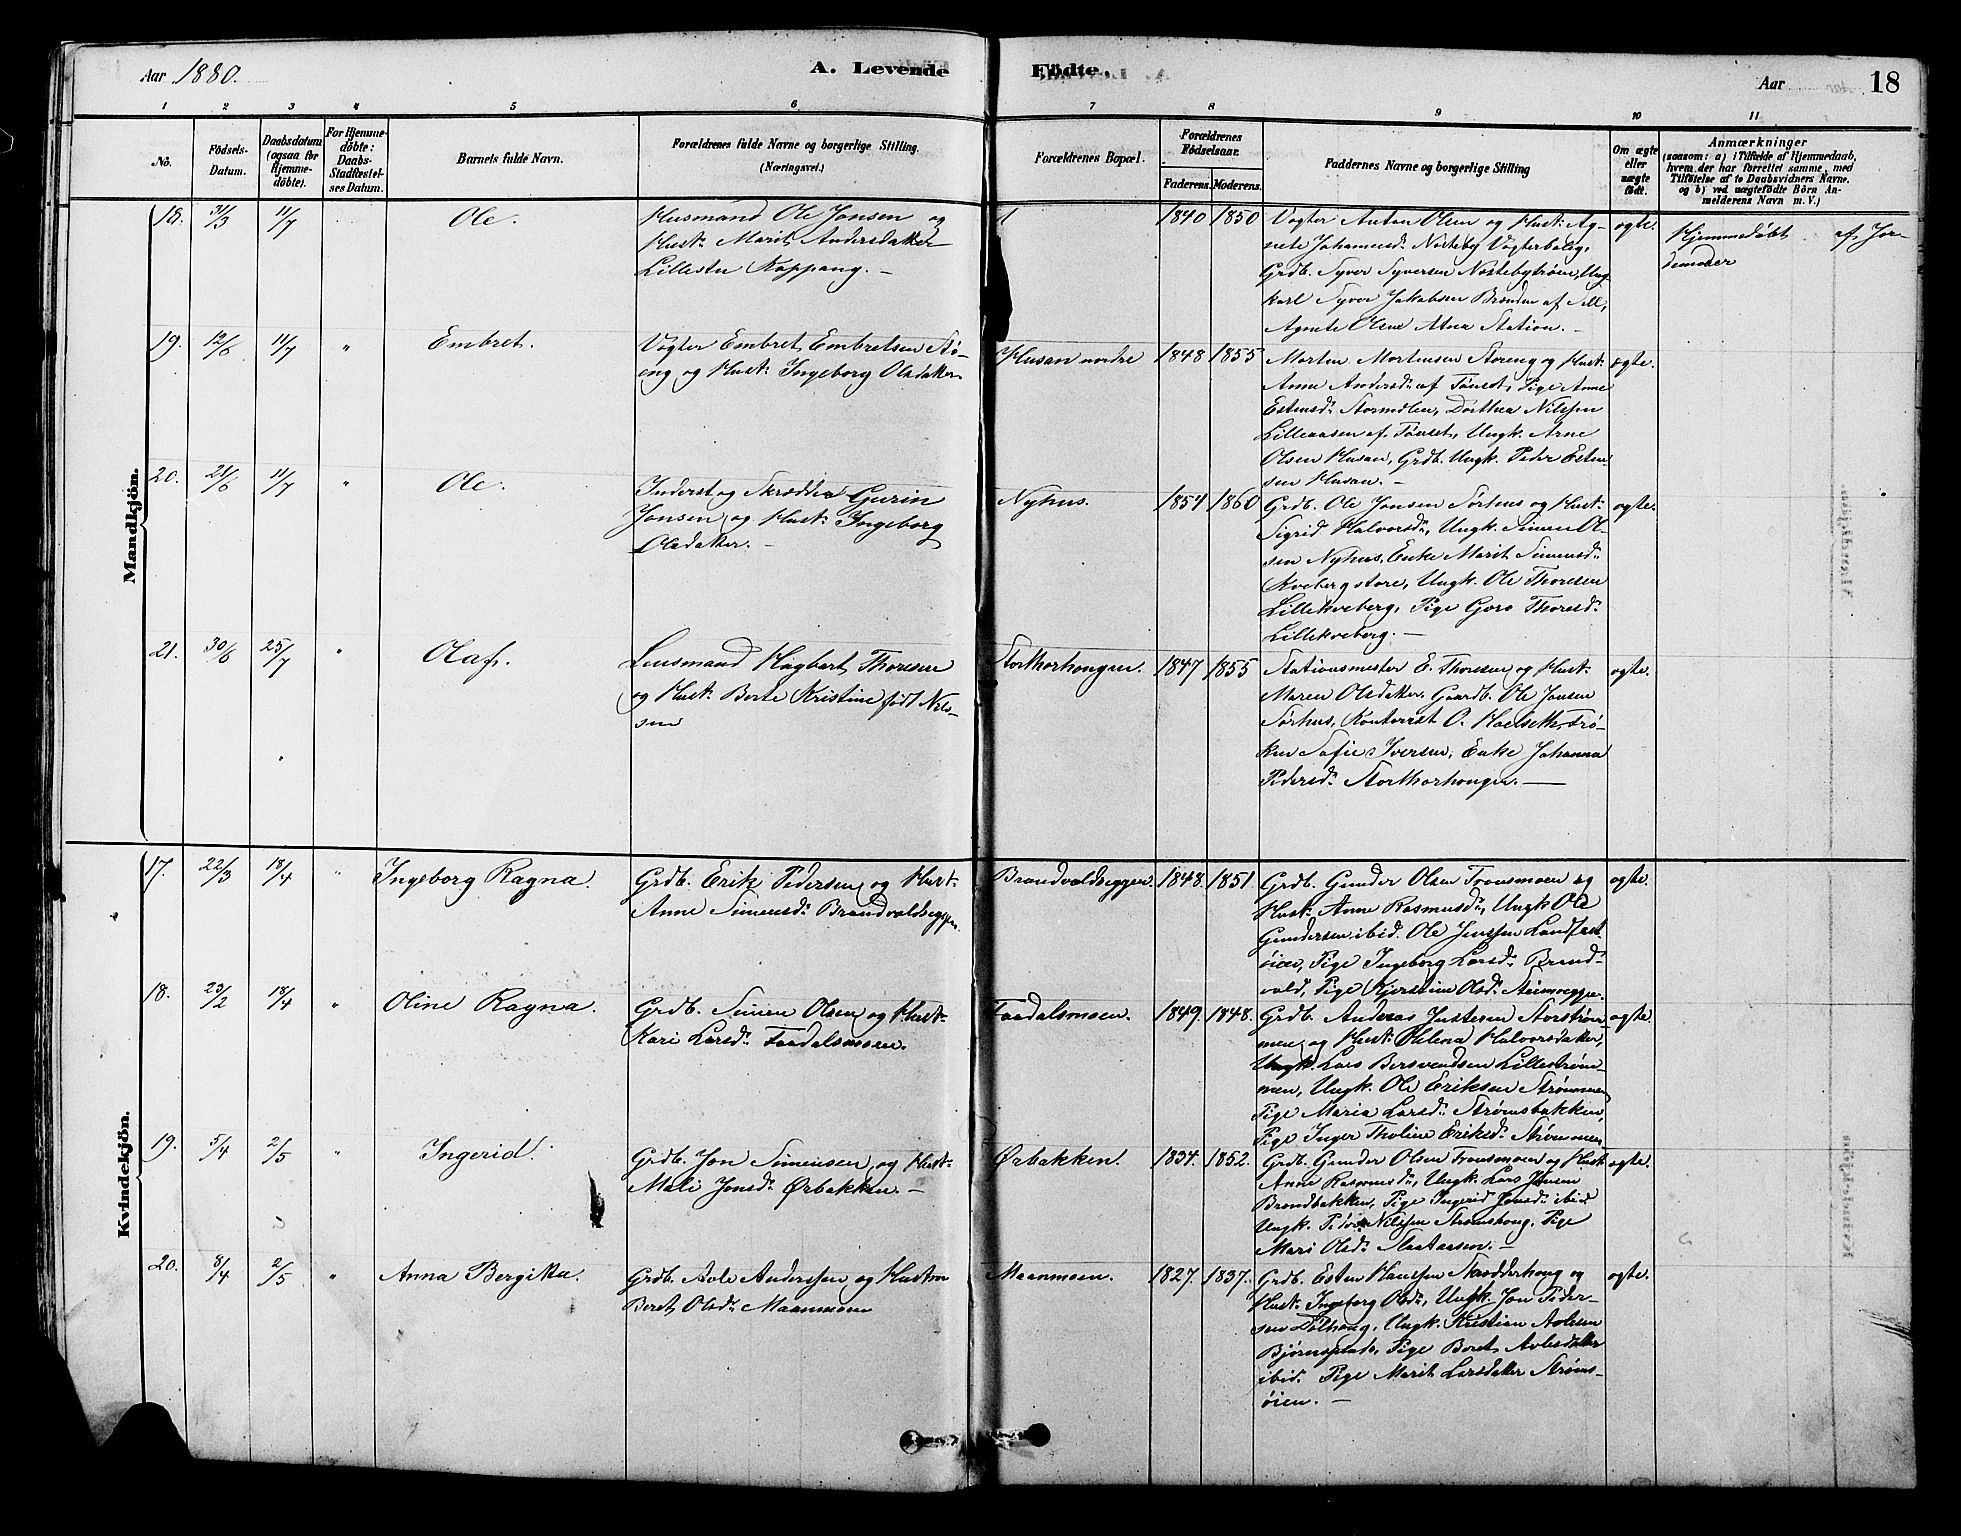 Aar 1880.
A. Levende
Födte.
Aar
18
1 2 3 4 5 6 7 8 9 10 11
No.
Födsels-
Datum.
Daabsdatum
(ogsaa for
Hjemme-
döbte).
For Hjemme-
döbte:
Daabs-
Stadfæstel-
ses Datum.
Barnets fulde Navn.
Forældrenes fulde Navne og borgerlige Stilling.
(Næringsvei.)
Forældrenes Bopæl.
Forældrenes
Födselsaar.
Faderens. Moderens.
Faddernes Navne og borgerlige Stilling
Om ægte
eller
uægte
födt.
Anmærkninger
(saasom: a) i Tilfælde af Hjemmedaab,
hvem der har forrettet samme, med
Tilföielse af to Daabsvidners Navne,
og b) ved uægtefödte Börn An-
melderens Navn m. V.)
Mandkjön.
18. 31/3 11/7 Ole.
Husmand Ole Jonsen og
Hust: Marit Andersdatter
Lillestu Koppang. —
1840 1850
Vogter Anton Olsen og Hust: Ag-
nete Johannesd: Nesteby Vogterbolig,
Grdb. Syver Syversen Nestebytrøen, Ung-
karl Syver Jakobsen Brænden af Sell,
Agnete Olsen Atna Station. —
ægte.
Hjemmedøbt af Jor-
demoder
19. 12/6 11/7 " Embret.
Vogter Embret Embretsen
og Hust: Ingeborg Olsdatter
Husan nordre
1848 1855
Morten Mortensen Storeng og Hust:
Anne Andersd: af Tønset, Pige Anne
Estensd: Stormoen, Dorthea Nilssen
Lilleaasen af Tønset, Ungk. Arne
Olsen Husan, Grdb. Ungk. Peder Esten-
sen Husan. —
ægte.
20. 21/6 11/7 " Ole.
Inderst og Skrædder Gurin
Jonsen og Hust: Ingeborg
Olsdatter. —
Nyhus.
1854 1860
Grdb. Ole Jonsen Sørhus og Hust:
Sigrid Halvorsd:, Ungk. Simen Ol-
sen Nyhus, Enke Marit Simensd:
Kveberg store, Ungk. Ole Thoresen
Lillekveberg, Pige Goro Thoresd:
Lillekveberg. —
ægte.
21. 30/6 25/7 " Olaf.
Lensmand Hagbart Thoresen
og Hust: Berte Kristine født Nils-
sen
Storthorhougen.
1847 1855
Stationsmester E. Thoresen og Hust:
Maren Olsdatter, Gaardb. Ole Jonsen
Sørhus, Kontorist O. Hoelseth, Frø-
ken Sofie Iversen, Enke Johanna
Pedersd: Storthorhougen. —
ægte.
Kvindekjön.
17. 22/3 18/4 " Ingeborg Ragna.
Grdb. Erik Pedersen og Hust:
Anne Simensd: Brandvoldseggen
Brandvoldseggen.
1848. 1851
Grdb. Gunder Olsen Tronsmoen og
Hust: Anne Rasmusd:, Ungk Ole
Gundersen ibid. Ole Jenssen Landfast-
øien, Pige Ingeborg Larsd: Brand-
vold, Pige Kjerstine Olsd:
ægte.
18. 23/2 18/4 " Oline Ragna.
Grdb. Simen Olsen og Hust:
Kari Larsd: Faadalsmoen.
Faadalsmoen.
1849. 1848.
Grdb. Andreas Justesen Storstrøm-
men og Hust: Helena Halvorsdatter,
Ungk. Lars Bersvendsen Lillestrøm-
men, Ungk. Ole Eriksen Strømmen
Pige Maria Larsd: Strømsbakken,
Pige Inger Tholine Eriksd: Strømmen
ægte.
19. 5/4 2/5 " Ingerid.
Grdb. Jon Simensen og Hust:
Mali Jonsd: Ørbakken. —
Ørbakken.
1834. 1852.
Grdb. Gunder Olsen Tronsmoen og Hust
Anne Rasmusd:, Ungk. Lars Jensen
Brandbakken, Pige Ingerid Jonsd: ibid
Ungk. Peder Nilssen Strømshoug, Pige
Mari Olsd: Slaataasen. —
ægte.
20. 8/4 2/5 " Anna Bergitta.
Grdb. Avle Anderssen og Hustru
Beret Olsd: Maanmoen
Maanmoen.
1827. 1837.
Grdb. Esten Hanssen Skrædderhoug og
Hust: Ingeborg Olsd:, Ungk. Jon Peder-
sen Dølhoug, Ungk. Kristian Avlesen
Bjørnsplads, Pige Beret Avlesdatter
ibid: Pige Marit Larsdatter Strøms-
øien. —
ægte.